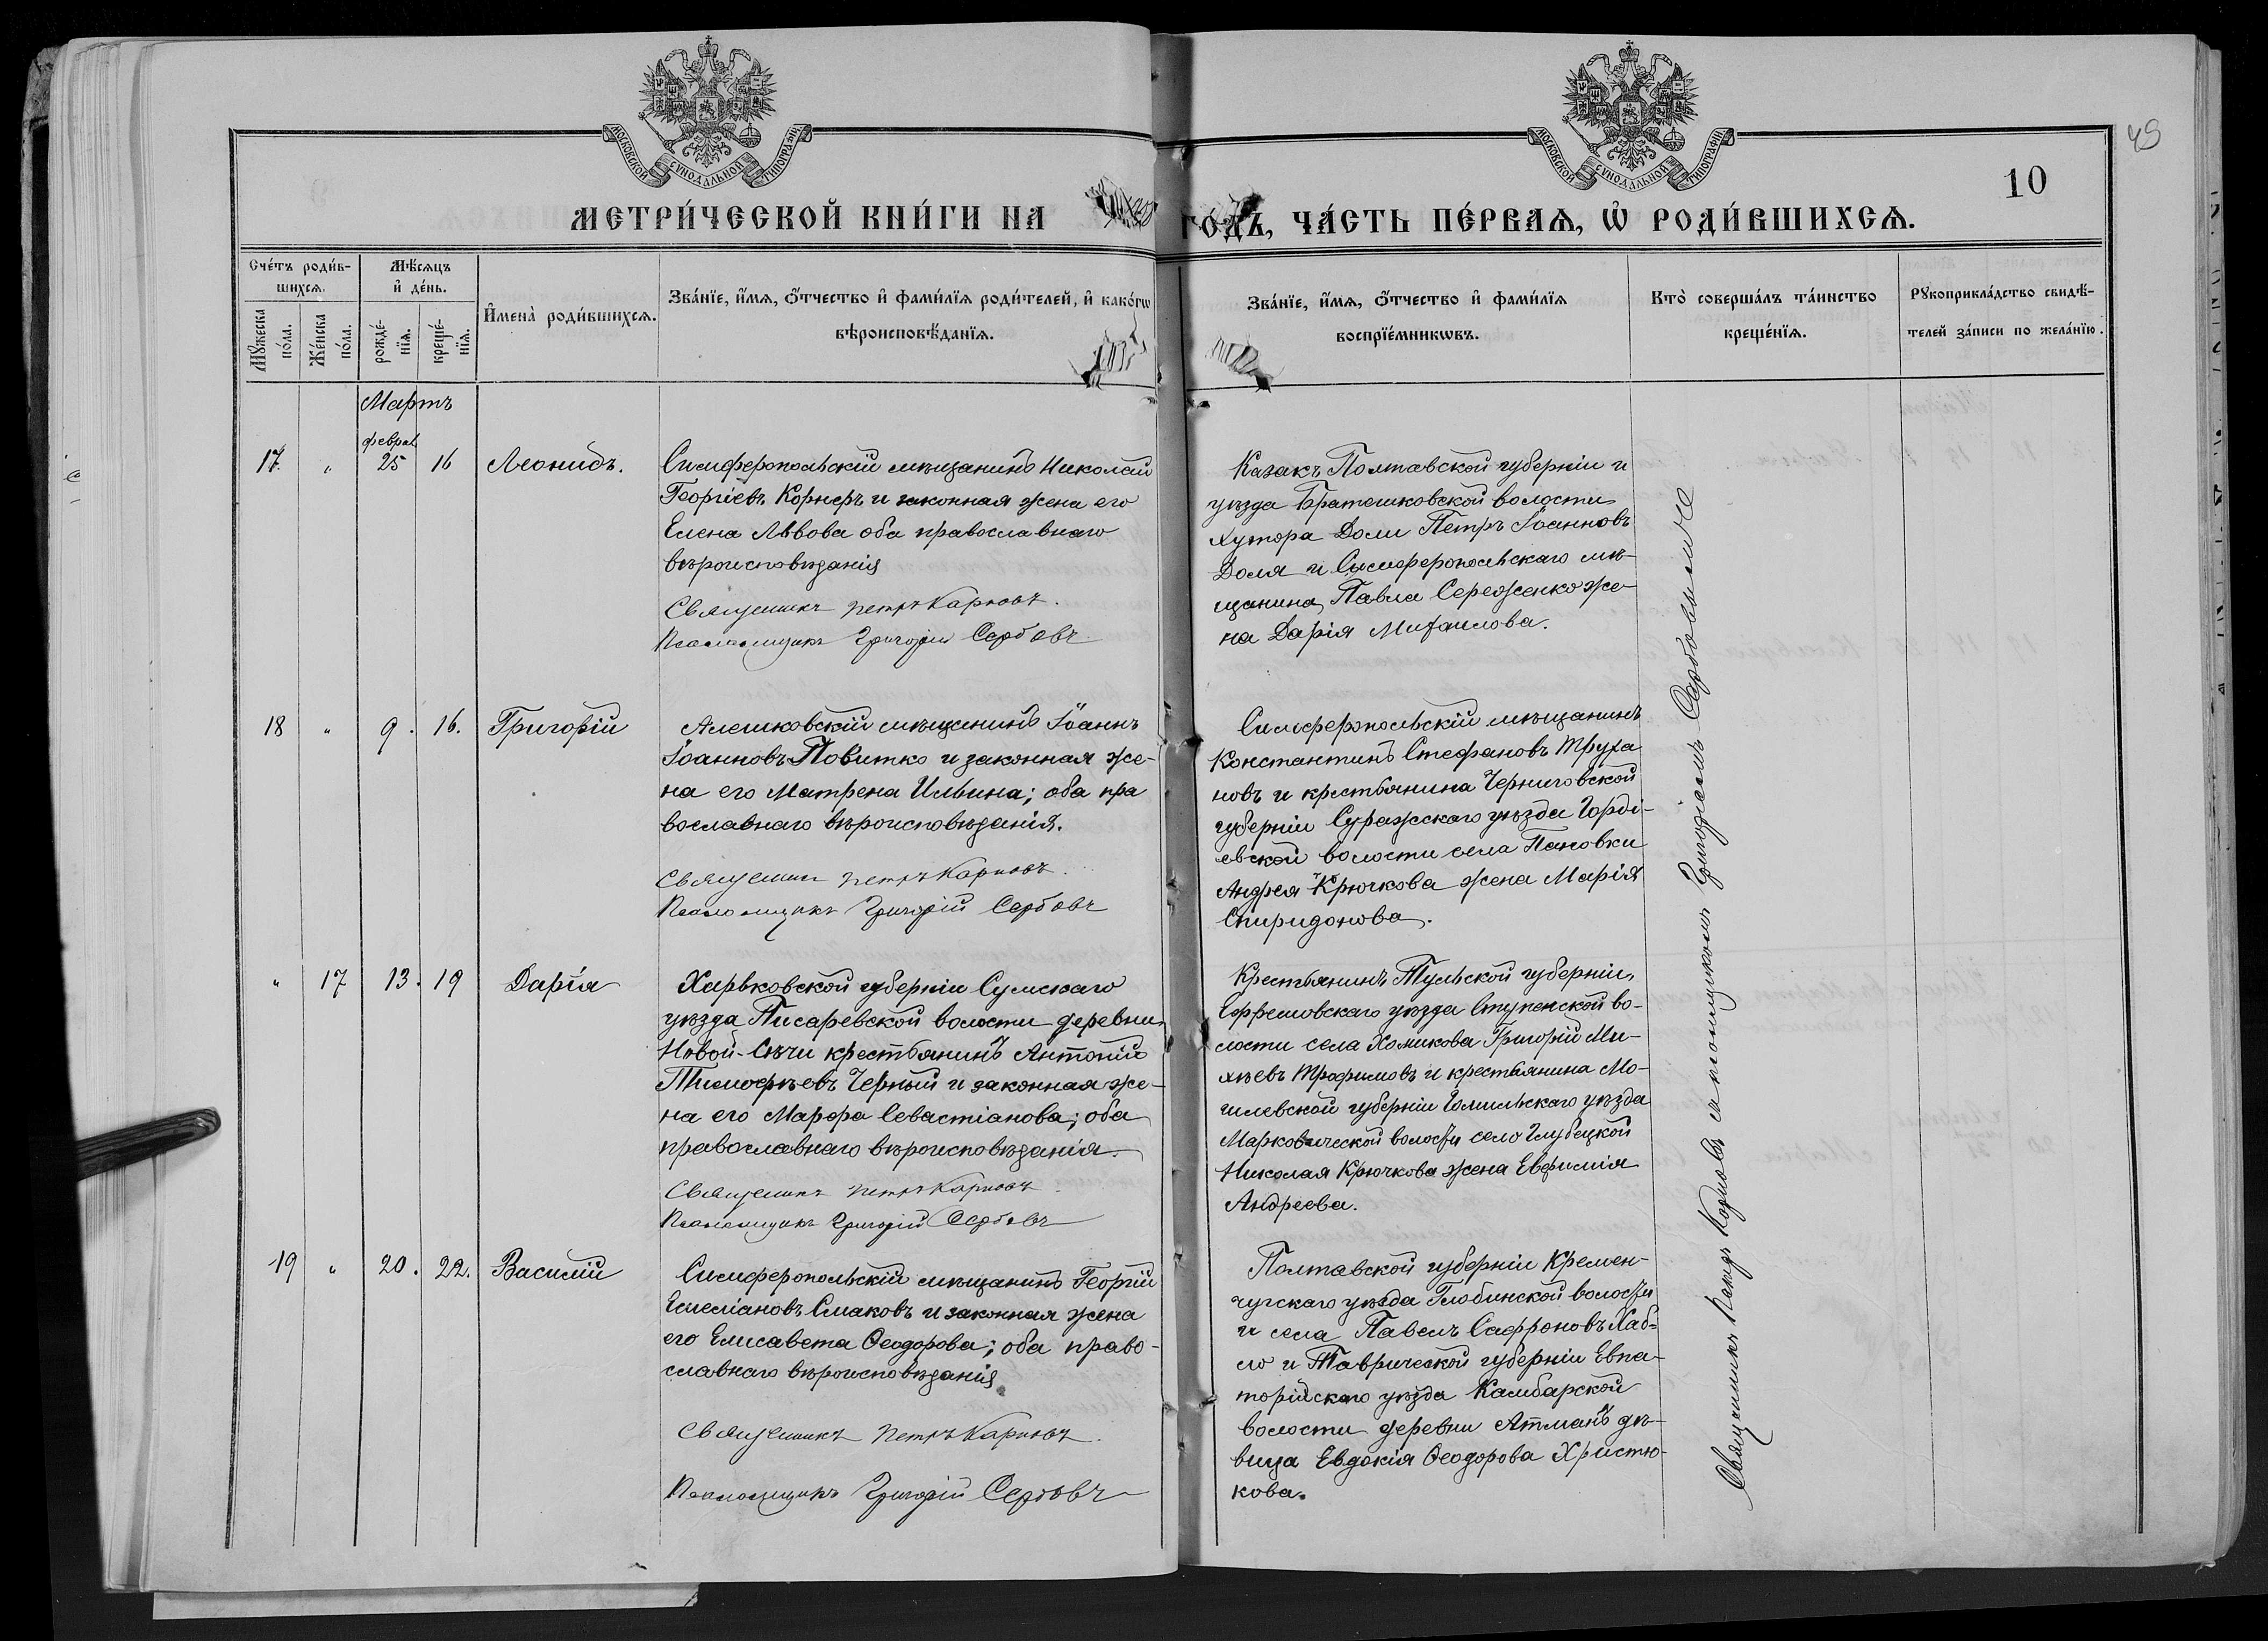 МОСКОВСКОЙ СѴНОДАЛЬНОЙ ТИПОГРАФІИ
МОСКОВСКОЙ СѴНОДАЛЬНОЙ ТИПОГРАФІИ
49
10
МЕТРИ́ЧЕСКОЙ КНИ́ГИ НА ГОДЪ, ЧА́СТЬ ПЕ́РВАѦ, Ѡ҆ РОДИ́ВШИХСѦ.
Сче́тъ роди́в-
шихсѧ.
Мꙋ́жеска по́ла.
Же́нска по́ла.
Мѣ́сѧцъ
и҆ де́нь.
рожде́-
нїѧ.
креще́-
нїѧ.
И҆мена̀ роди́вшихсѧ.
Зва́нїе, и҆́мѧ, ѻ҆́тчество и҆ фами́лїѧ роди́телей, и҆ како́гѡ
вѣроисповѣ́данїѧ.
Зва́нїе, и҆́мѧ, ѻ҆́тчество и҆ фами́лїѧ
воспрїе́мникѡвъ.
Кто̀ соверша́лъ та́инство
креще́нїѧ.
Рꙋкоприкла́дство свидѣ́-
телей за́писи по жела́нїю.
Мартъ
феврал
17. „ 25 16 Леонидъ.
Симферопольскій мѣщанинъ Николай
Георгіевъ Корнеръ и законная жена его
Елена Львова оба православнаго
вѣроисповѣданія
Священникъ Петръ Карповъ.
Псаломщикъ Григорій Сербовъ
Казакъ Полтавской губерніи и
уѣзда Братешковской волости
хутора Доли Петръ Іоанновъ
Доля и Симферопольскаго мѣ-
щанина Павла Середенко же-
на Дарія Михаилова.
18 „ 9. 16. Григорій
Алешковскій мѣщанинъ Іоаннъ
Іоанновъ Повитко и законная же-
на его Матрена Ильина; оба пра
вославнаго вѣроисповѣданія.
Священникъ Петръ Карповъ.
Псаломщикъ Григорій Сербовъ
Симферопольскій мѣщанинъ
Константинъ Стефановъ Труха
новъ и крестьянина Черниговской
губерніи Суражскаго уѣзда Горді-
евской волости села Пановки
Андрея Крючкова жена Марія
Спиридонова.
„ 17 13. 19 Дарія
Харьковской губерніи Сумскаго
уѣзда Писаревской волости деревни
Новой-Сѣчи крестьянинъ Антоній
Тимофѣевъ Черный и законная же-
на его Марфа Севастіанова; оба
православнаго вѣроисповѣданія.
Священникъ Петръ Карповъ.
Псаломщикъ Григорій Сербовъ
Крестьянинъ Тульской губерніи,
Ефремовскаго уѣзда Ступенской во-
лости села Хомикова Григорій Ми-
хѣевъ Трофимовъ и крестьянина Мо-
гилевской губерніи Гомельскаго уѣзда
Марковической волости село Глубецкой
Николая Крючкова жена Евфимія
Андреева.
19 „ 20. 22. Василій
Симферопольскій мѣщанинъ Георгій
Емеліановъ Смаковъ и законная жена
его Елисавета Ѳеодорова; оба право-
славнаго вѣроисповѣданія
Священникъ Петръ Карповъ.
Псаломщикъ Григорій Сербовъ
Полтавской губерніи Кремен-
чугскаго уѣзда Глобинской волости
и села Павелъ Сафроновъ Хаб-
ло и Таврической губерніи Евпа-
торійскаго уѣзда Камбарской
волости деревни Атманъ дѣ-
вица Евдокія Ѳеодорова Христю-
кова.
Священникъ Петръ Карповъ съ псаломщикомъ Григоріемъ Сербовымъ